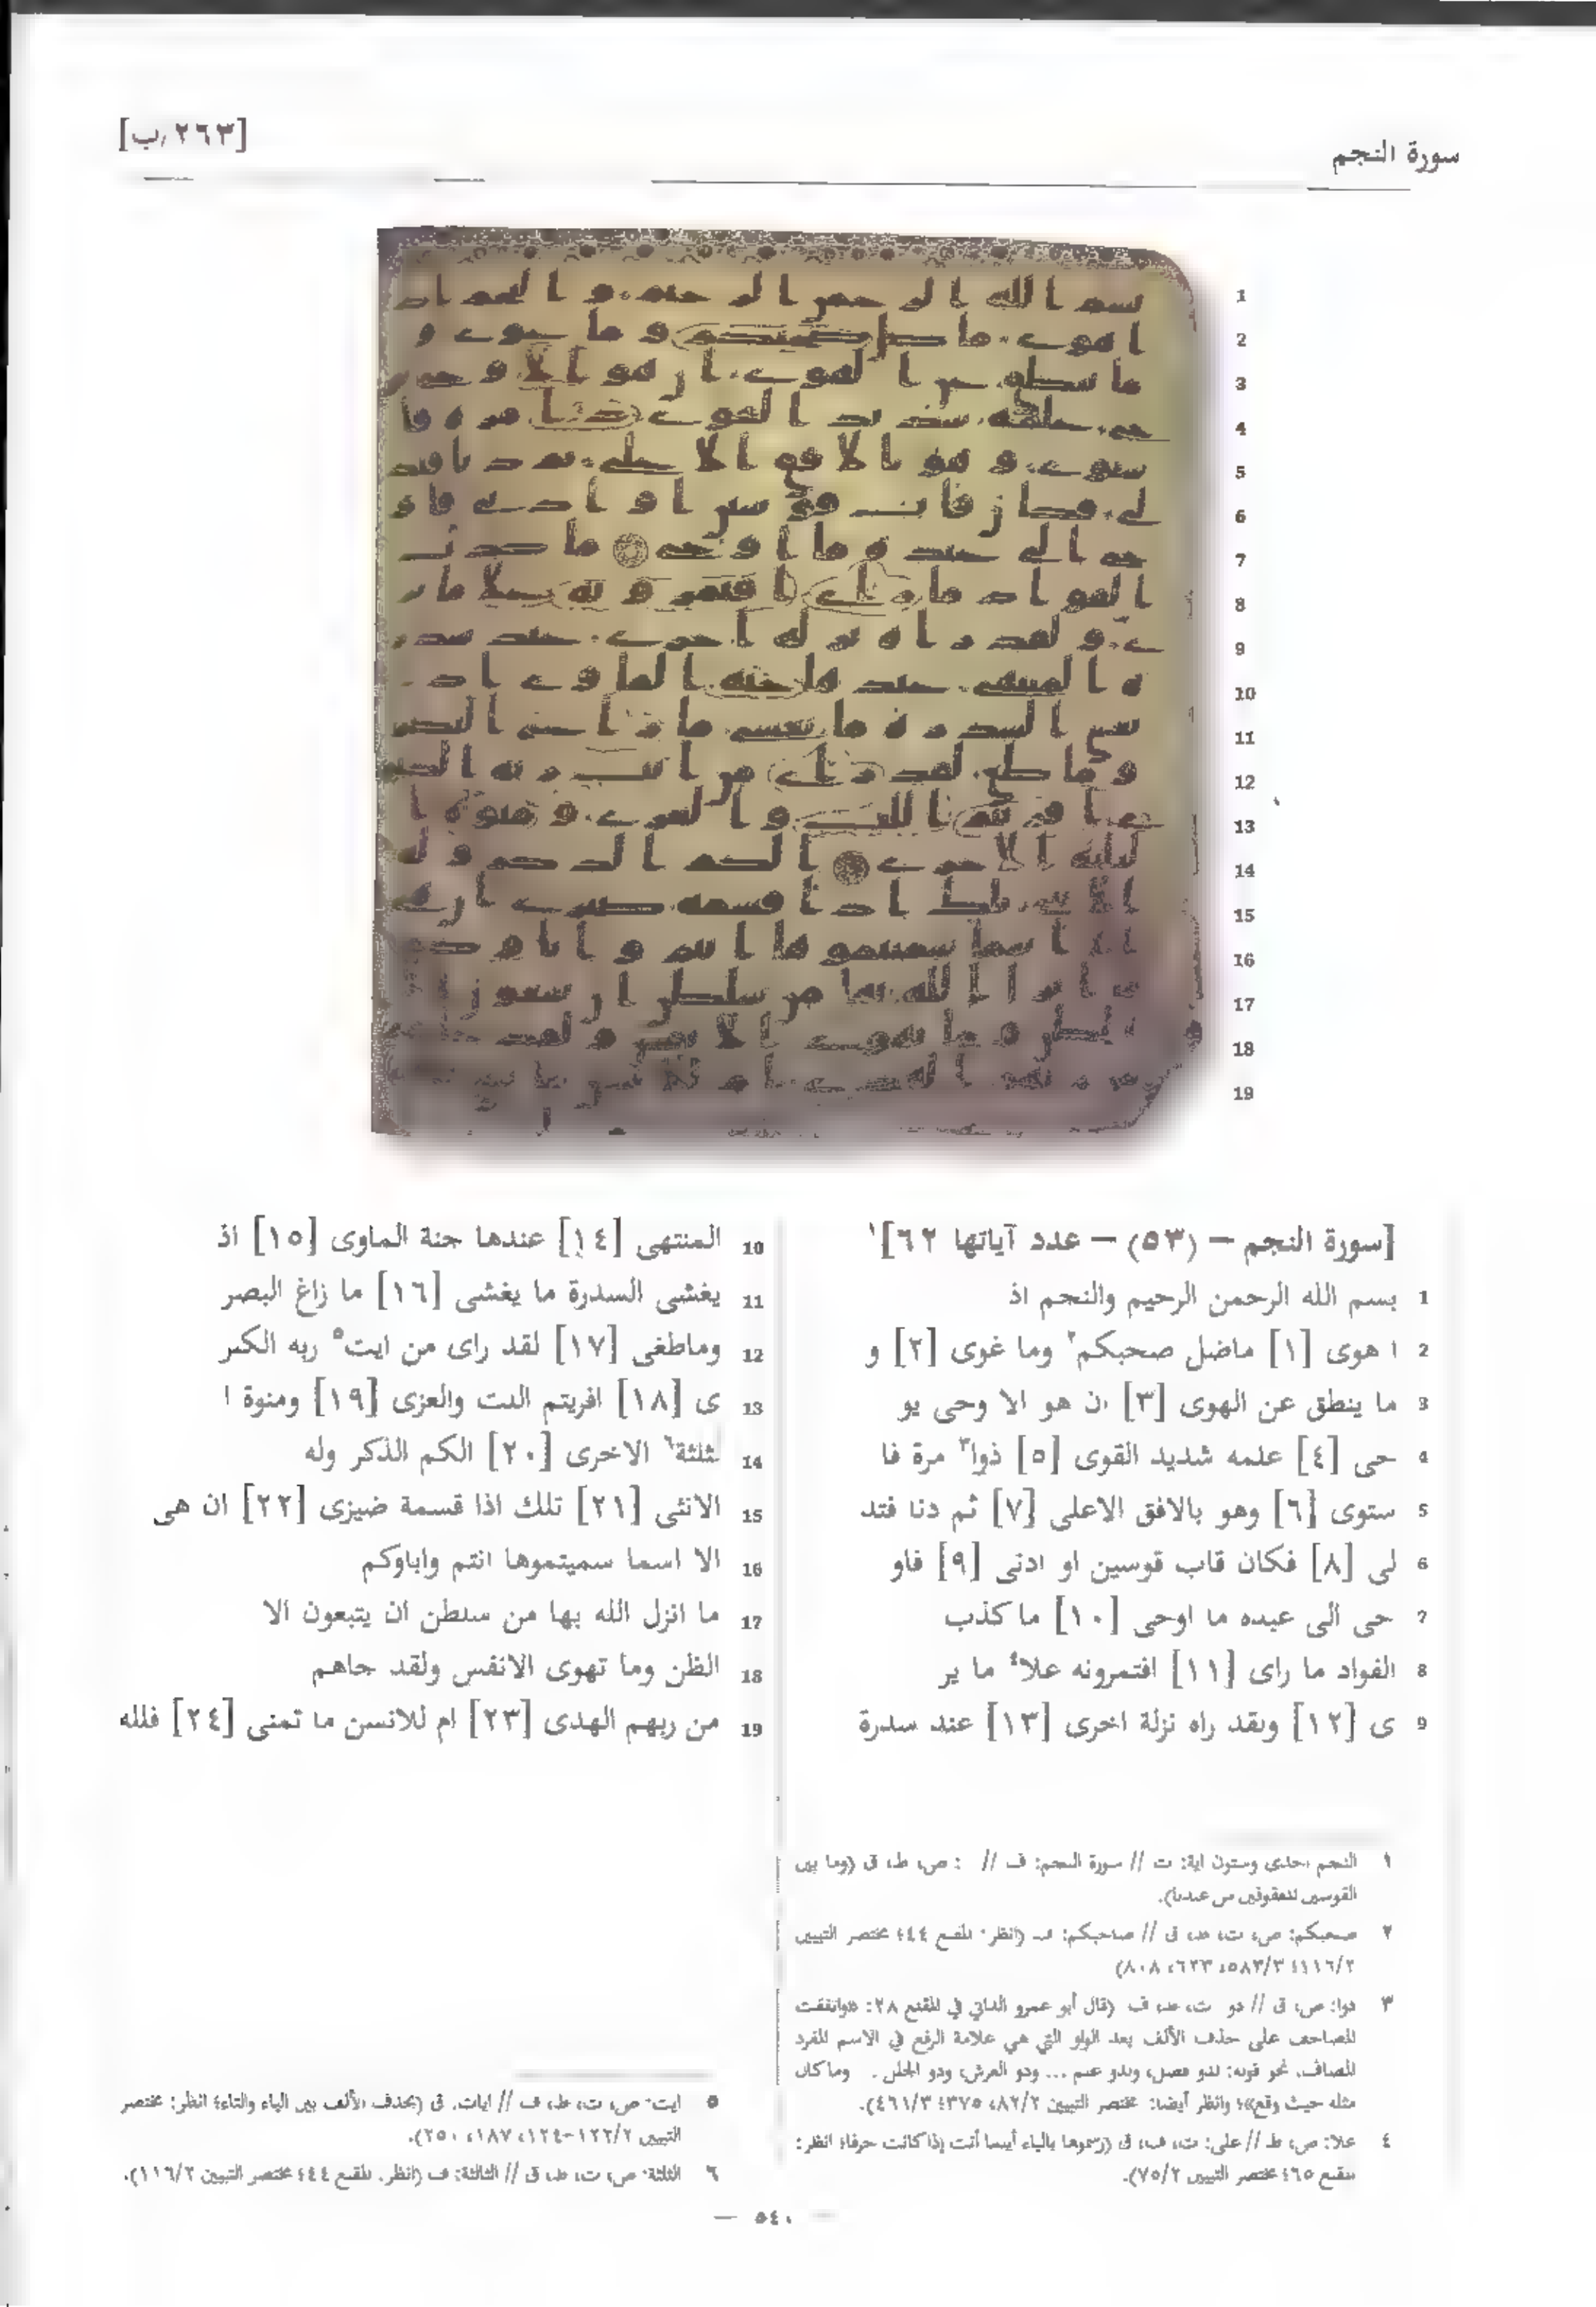 سورة النجم
[٢٦٣/ب]
1
2
3
4
5
6
7
8
9
10
11
12
13
14
15
16
17
18
19
[سورة النجم – (٥٣) – عدد آياتها ٦٢]١
1 بسم الله الرحمن الرحيم والنجم اذ
2 ا هوى [١] ماضل صحبكم٢ وما غوى [٢] و
3 ما ينطق عن الهوى [٣] ان هو الا وحى يو
4 حى [٤] علمه شديد القوى [٥] ذوا٣ مرة فا
5 ستوى [٦] وهو بالافق الاعلى [٧] ثم دنا فتد
6 لى [٨] فكان قاب قوسين او ادنى [٩] فاو
7 حى الى عبده ما اوحى [١٠] ما كذب
8 الفواد ما راى [١١] افتمرونه علا٤ ما ير
9 ى [١٢] ولقد راه نزلة اخرى [١٣] عند سدرة
10 المنتهى [١٤] عندها جنة الماوى [١٥] اذ
11 يغشى السدرة ما يغشى [١٦] ما زاغ البصر
12 وماطغى [١٧] لقد راى من ايت٥ ربه الكبر
13 ى [١٨] افريتم اللت والعزى [١٩] ومنوة ا
14 لثلثة٦ الاخرى [٢٠] الكم الذكر وله
15 الانثى [٢١] تلك اذا قسمة ضيزى [٢٢] ان هى
16 الا اسما سميتموها انتم واباوكم
17 ما انزل الله بها من سلطن ان يتبعون الا
18 الظن وما تهوى الانفس ولقد جاهم
19 من ربهم الهدى [٢٣] ام للانسن ما تمنى [٢٤] فلله
١ النجم احدى وستون اية: ت // سورة النجم: ف // : ص، ط، ق (وما بين
القوسين المعقوفين من عندنا).
٢ صحبكم: ص، ت، ط، ق // صاحبكم: ف (انظر: المقنع ٤٤؛ مختصر التبيين
١١٦/٢؛ ٥٨٣/٣، ٦٢٣، ٨٠٨)
٣ ذوا: ص، ق // ذو ت، ط، ف (قال أبو عمرو الداني في المقنع ٢٨: «واتفقت
المصاحف على حذف الألف بعد الواو التي هي علامة الرفع في الاسم المفرد
المضاف، نحو قوله: لذو فضل، ولذو علم ... وذو العرش، وذو الجلل . وما كان
مثله حيث وقع»؛ وانظر أيضا: مختصر التبيين ٨٢/٢، ٣٧٥؛ ٤٦١/٣).
٤ علا: ص، ط // على: ت، ف، ق (رسموها بالياء أينما أتت إذا كانت حرفا؛ انظر:
مقنع ٦٥؛ مختصر التبيين ٧٥/٢).
٥ ايت: ص، ت، ط، ف // ايات: ق (بحذف الألف بين الياء والتاء؛ انظر: مختصر
التبيين ١٢٢/٢-١٢٤، ١٨٧، ٢٥٠).
٦ الثلثة: ص، ت، ط، ق // الثالثة: ف (انظر: المقنع ٤٤؛ مختصر التبيين ١١٦/٢).
— ٥٤٠ —